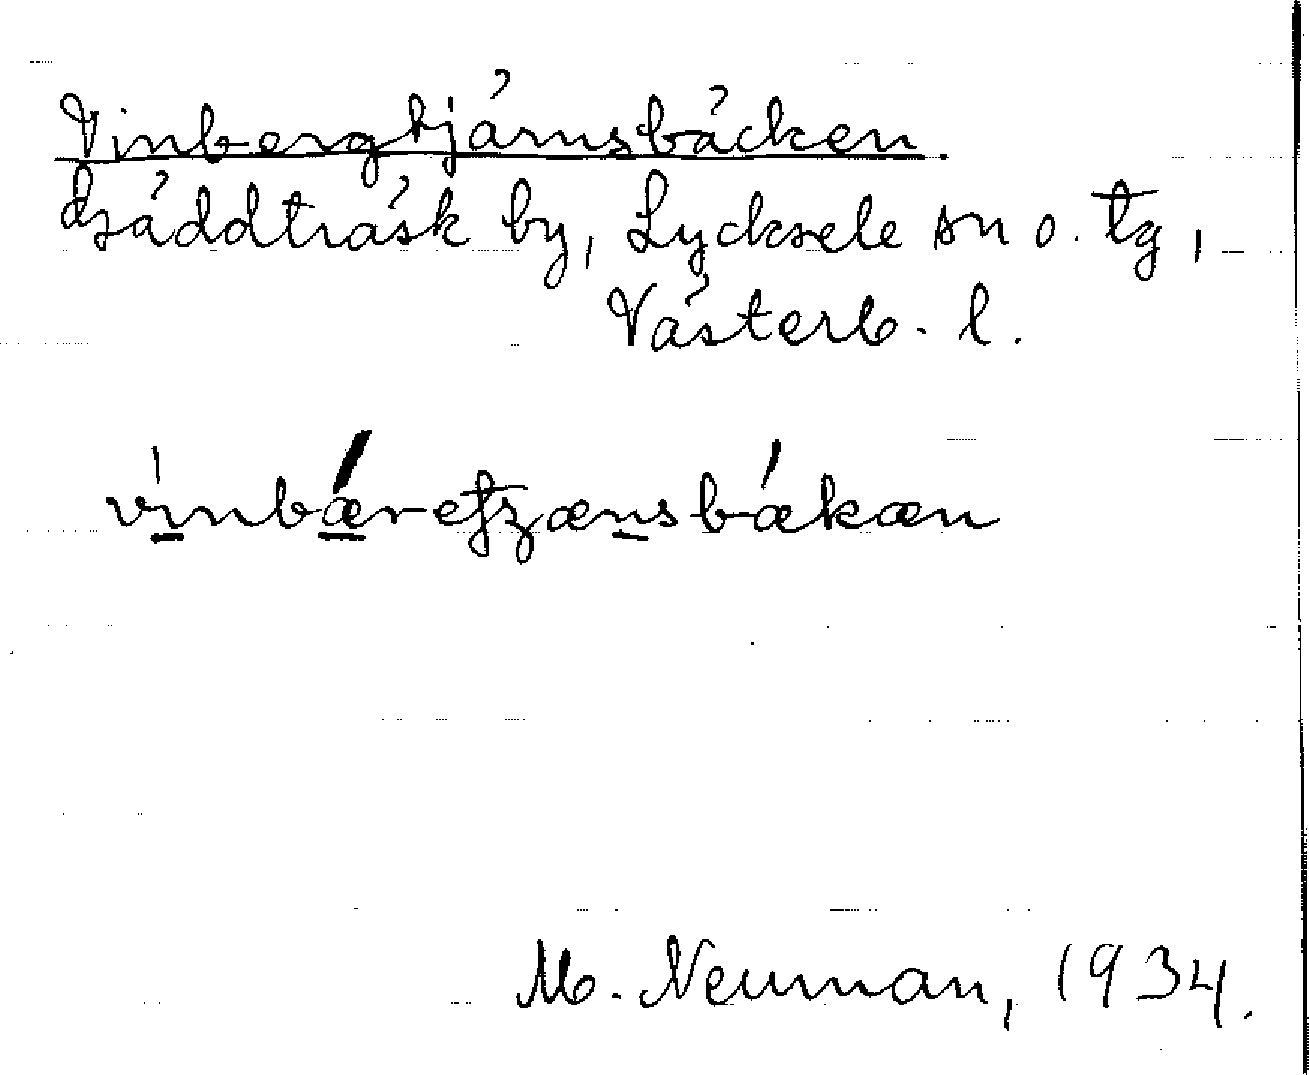 Vinbergtjärnsbäcken.
Bräddträsk by, Lycksele sn o. tg,
Västerb. l.
M. Neuman, 1934.